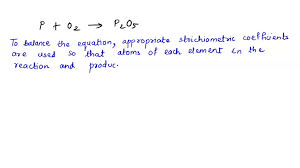 P + O₂ → P₂O₅
To balance the equation, appropriate strichiometric coefficients
are used so that atoms of each element in the
reaction and produc.